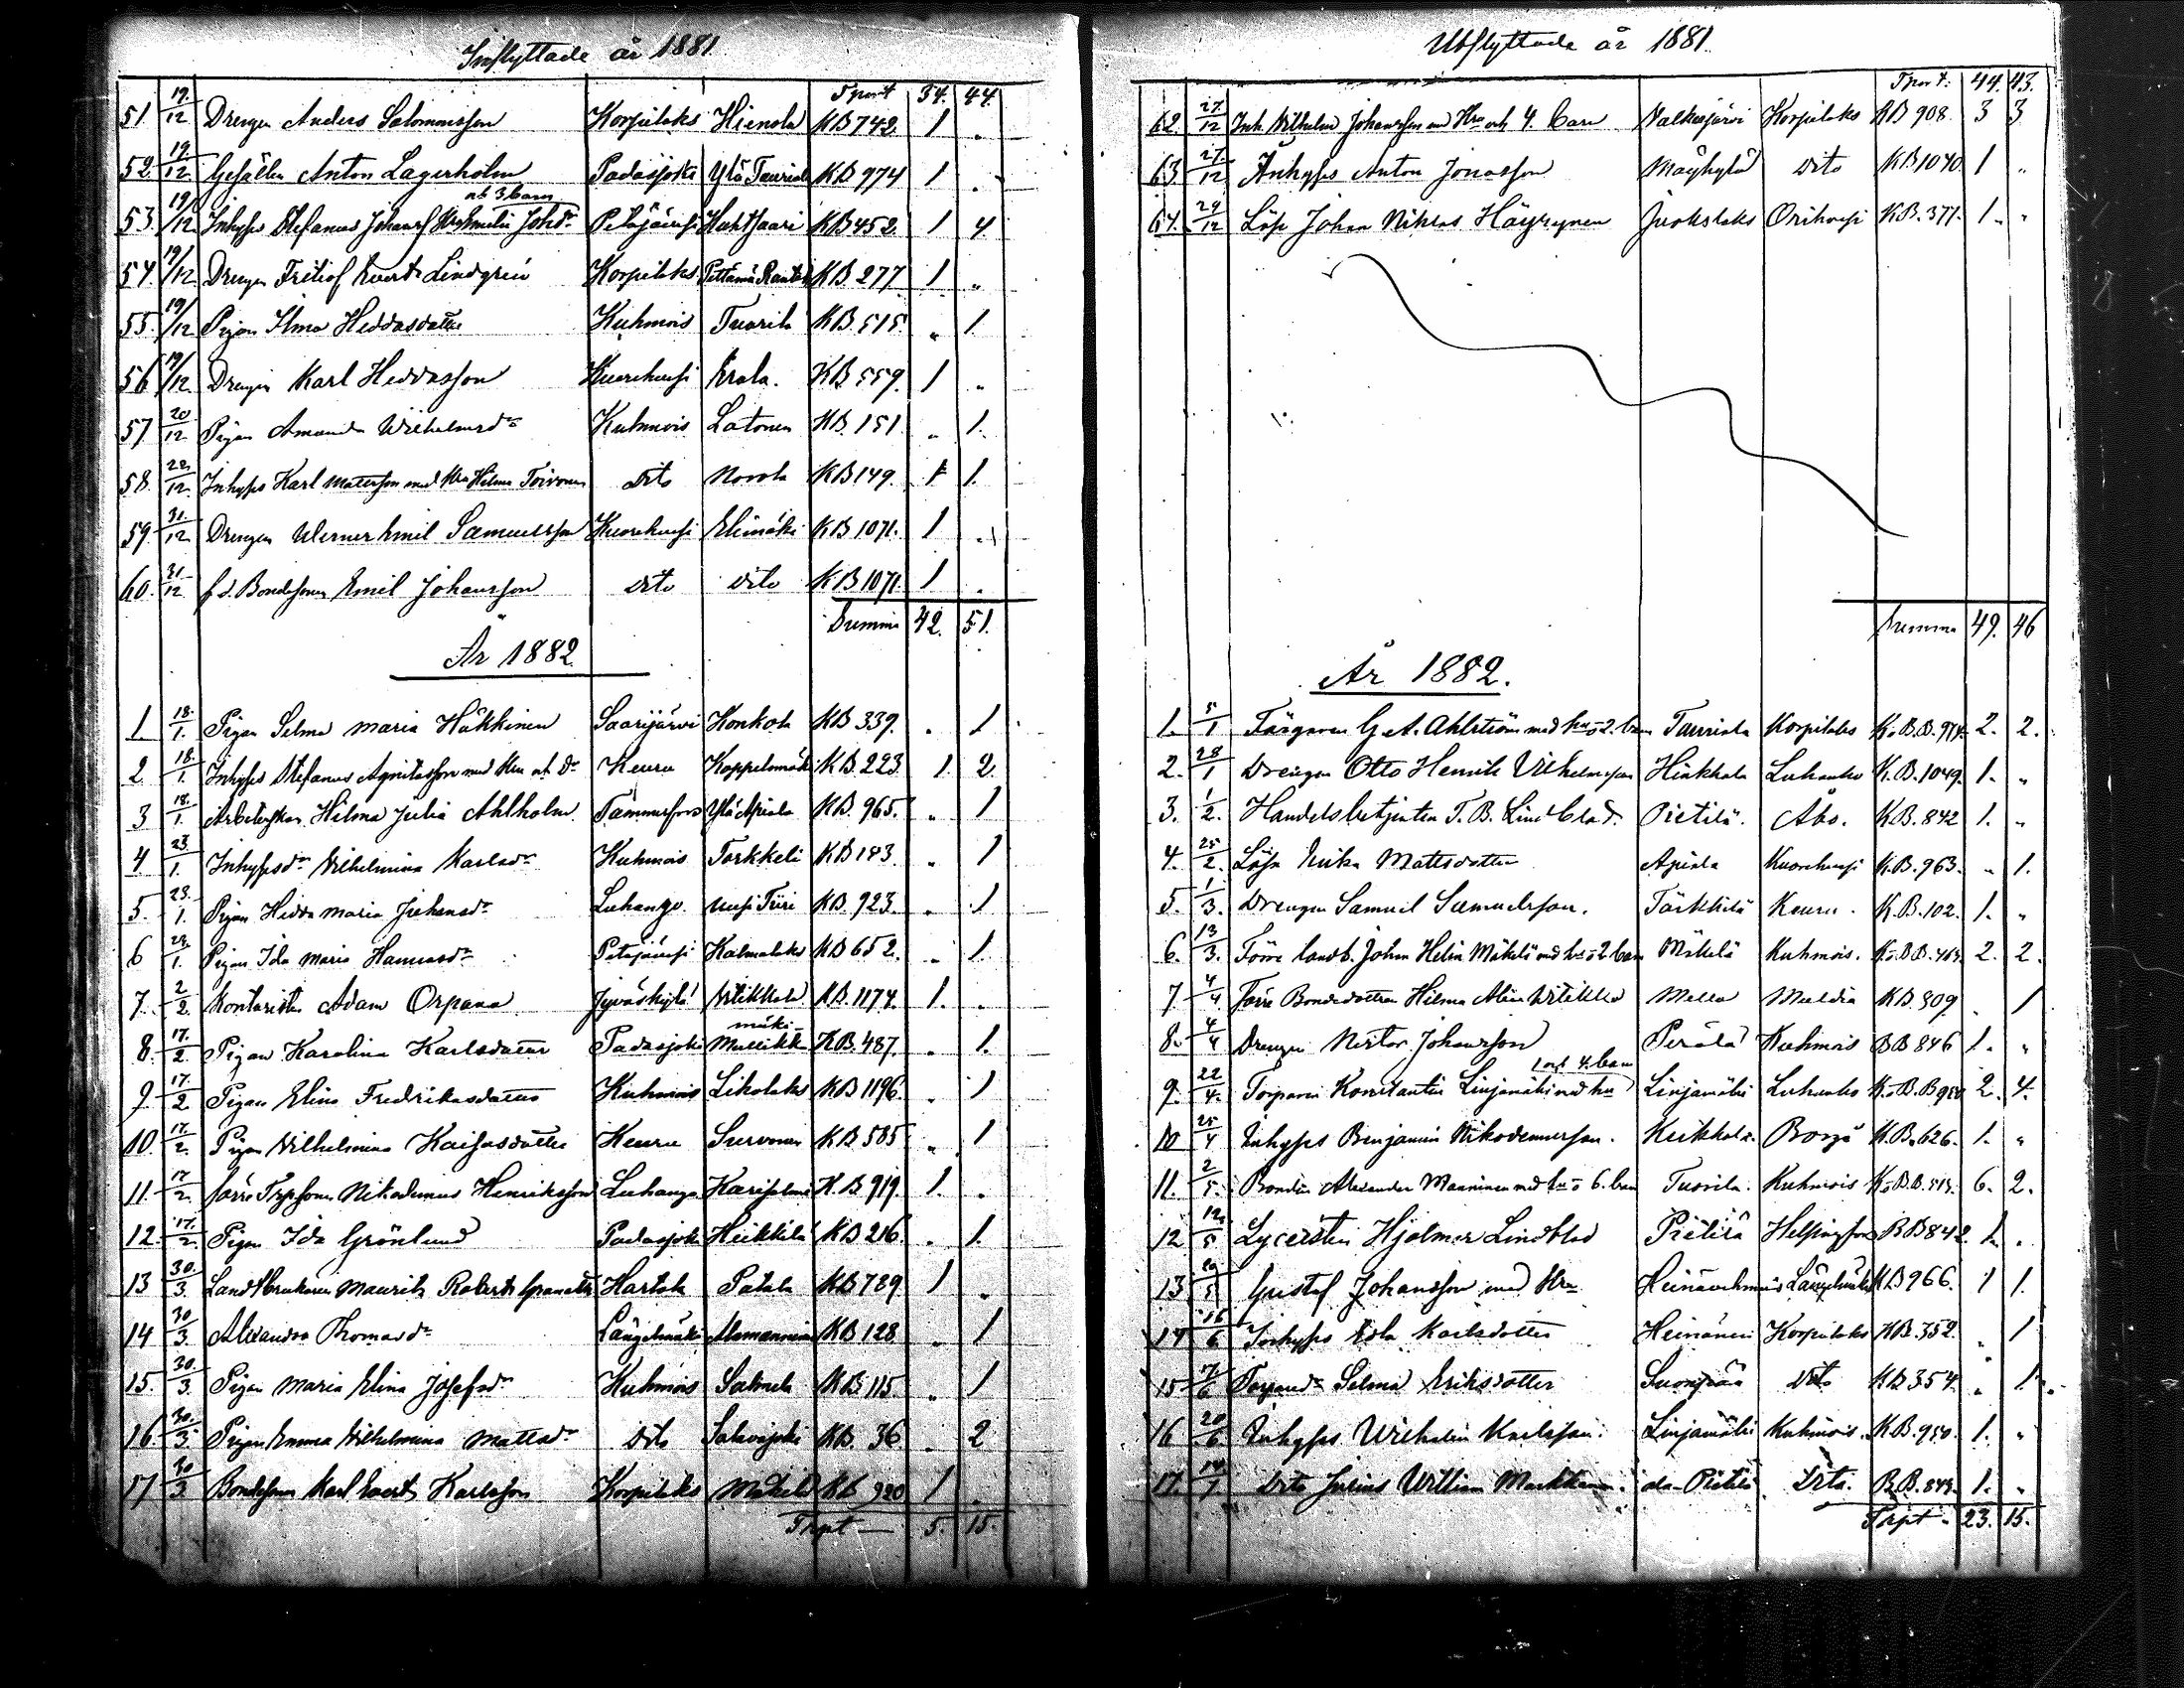 Inflyttade år 1881
Tpart 34. 44.
51. 19/12 Drengen Anders Salomonsson Korpilaks Hienola KB 742. 1 "
52. 19/12 Gesällen Anton Lagerholm Padasjoki Ylä Tauriala KB 974 1 "
och 3 barn
53. 19/12 Inhyses Stefanus Johansf Hru Emilia Johsdr Petäjävesi Huhtsaari KB 452. 1 4.
54. 19/12 Drengen Fritiof Evert Lindgren Korpilaks KB. 277 1 "
55. 19/12 Pigan Ilma Heddasdotter Kuhmois Tuorila KB. 515. " 1.
56 19/12 Drengen Karl Heddasson Kuorehvesi Erola. KB 559. 1 "
57 20/12 Pigan Amanda Wilhelmsdr Kuhmois Latonen KB. 151 " 1.
58. 22/12 Inhyses Karl Mattsson med Hru Hilma Toivonen dito KB 149. 1 1.
59. 31/12 Drengen Werner Emil Samuelsson Kuorehvesi Elimäki KB 1071. 1 "
60. 31/12 f.d. Bondesonen Emil Johansson dito dito KB 1071. 1 "
Summa 42. 51.
År 1882
1 18/1. Pigan Selma Maria Häkkinen Saarijärvi Konkola KB 339. " 1
2 18/1. Inhyses Stefanus med Hru och Dr Keuru Koppelomäki KB. 223 1. 2.
3 18/1. Arbeterskan Hilma Julia Ahlholm Tammerfors Ylä Apiala KB. 965. " 1
4 23/1. Inhysesdr Wilhelmina Karlsdr Kuhmois Torkkeli KB 143. " 1
5. 23/1. Pigan Hedda Maria Johansdr Luhango Uusi Tiiri KB. 923. " 1
6 23/1. Pigan Ida Maria Petäjävesi KB 652. " 1.
7. 2/2. Kontoristen Adam Orpana Jyväskylä Witikkala KB. 1174. 1. "
mäki-
8. 17/2. Pigan Karolina Karlsdotter Padasjoki Mullikka KB. 487. " 1.
9. 17/2 Pigan Elina Fredriksdotter Kuhmois Likolaks KB 1196. " 1
10. 17/2. Pigan Wilhelmina Kaisasdotter Keuru Survonen KB 505 " 1
11. 17/2. förre Trpsonen Nikodemus Henriksson Luhanga Karisalmi KB 919. 1. "
12. 17/2. Pigan Ida Grönlund Padasjoki Heikkilä KB 216. " 1.
13 30/3. Landtbrukaren Mauritz Robert Hartola Patala KB 789 1 "
14 30/3. Alexandra Thomasdr Längelmäki KB 128 " 1
15. 30/3. Pigan Maria Elina Josefsdr Kuhmois KB. 115. " 1
16. 30/3. Pigan Emma Wilhelmina Mattsdr dito KB. 36 " 2
17 30/3 Bondesonen Karl Evert Karlsson Korpilaks KB 920 1 "
Trpt — 5. 15.
Utflyttade år 1881.
Tpart. 44. 43.
62. 27/12 Inh. Wilhelm Johansson med Hru och 4. barn Valkeajärvi Korpilaks KB 908. 3 3
63. 27/12 Inhyses Anton Jonasson Mäyhylä dito KB. 1040. 1 "
64. 29/12 Lösk Johan Niklas Häyrynen Juokslaks Orihvesi KB. 377. 1. "
Summa 49. 46
År 1882.
1. 5/1 Färgaren G. A. Ahlström med hu o 2. barn Tauriala Korpilaks K.o.B.B. 974. 2. 2.
2. 28/1 Drengen Otto Henrik Vilhelmsson Hinkkala Luhanko K.B. 1049. 1. "
3. 1/2. Handelsbetjenten T. B. Lindblad. Pietilä. Åbo. KB. 842 1. "
4. 25/2. Lösa Erika Mattsdotter Apiala Kuorehvesi K.B. 963. " 1.
5. 1/3. Drengen Samuel Samuelsson. Tärkkilä Keuru. K.B. 102. 1. "
6. 13/3. Förre landb. Johan Helin Mäkelä med hu o 2 barn Mäkelä Kuhmois. K.o.B.B. 2. 2.
7. 4/4 Förre Bondedottren Hilma Alina Witikka Mella Muldia KB. 309 " 1
8. 4/4 Drengen Nestor Johansson Perälä Kuhmois BB 846 1. "
och 4. barn
9. 22/4. Torparen Konstantin Linjamäki med hu Linjamäki Luhanko K.o.B.B 950 2. 4.
10 25/4 Inhyses Benjamin Nikodemusson. Keikkala. Borgå K.B. 626. 1. "
11. 2/5. Bonden Alexander Manninen med hu o 6. barn Tuorila. Kuhmois K.o.B.B. 515. 6. 2.
12 12/5 Lyceisten Hjalmar Lindblad Pietilä Helsingfors BB 842 1. "
13 20/5 Gustaf Johansson med Hru Heinävehmais Längelmäki KB 966. 1 1.
14 15/6 Inhyses Eola Karlsdotter Heinänen Korpilaks KB. 352. " 1
15 17/6 Torparedr Selma Eriksdotter Suonpää dito KB 354. " 1.
16 20/6. Inhyses Wilhelm Karlsson. Linjamäki Kuhmois. KB. 950. 1. "
17. 14/7 Dito Julius William Markkanen. ala-Pietilä Dito. BB. 843. 1. "
Trpt - 23. 15.